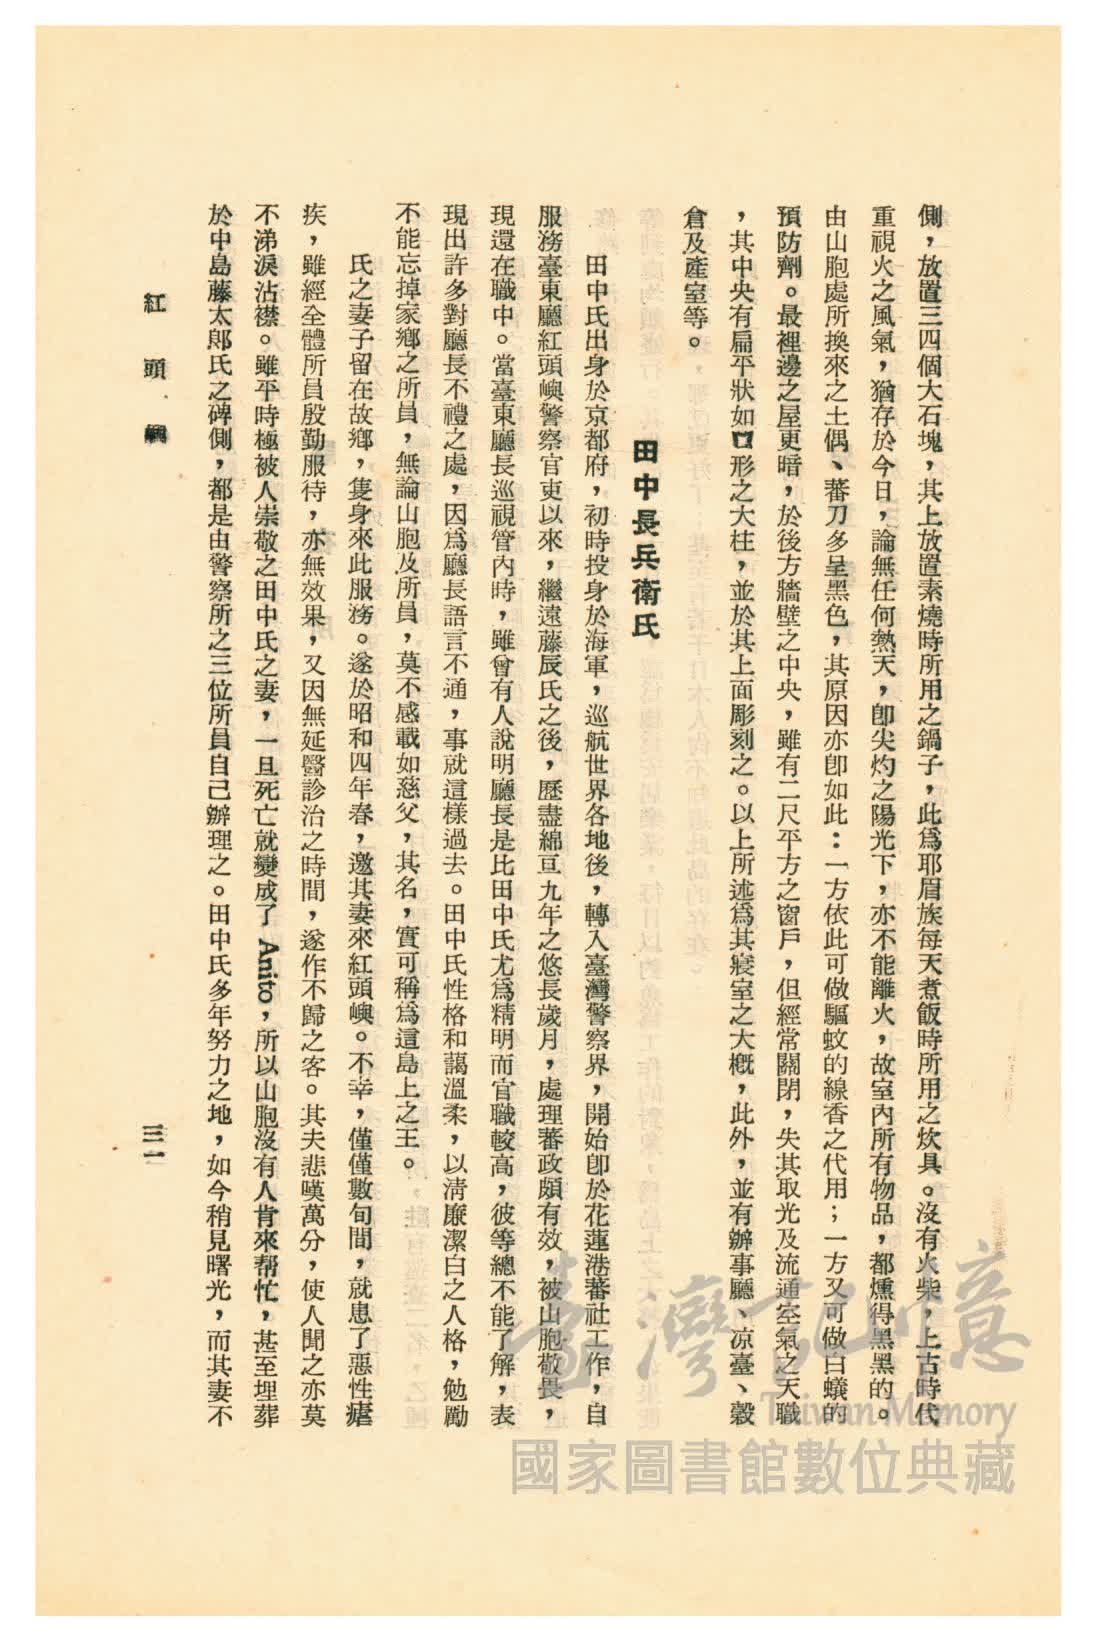 側，放置三四個大石塊，其上放置素燒時所用之鍋子，此爲耶眉族每天煮飯時所用之炊具。沒有火柴，上古時代
重視火之風氣，猶存於今日，論無任何熱天，卽尖灼之陽光下，亦不能離火，故室內所有物品，都燻得黑黑的。
由山胞處所換來之土偶、蕃刀多呈黑色，其原因亦卽如此：一方依此可做驅蚊的線香之代用；一方又可做白蟻的
預防劑。最裡邊之屋更暗，於後方牆壁之中央，雖有二尺平方之窗戶，但經常關閉，失其取光及流通空氣之天職
，其中央有扁平狀如口形之大柱，並於其上面彫刻之。以上所述爲其寢室之大槪，此外，並有辦事廳、凉臺、穀
倉及產室等。
田中長兵衛氏
田中氏出身於京都府，初時投身於海軍，巡航世界各地後，轉入臺灣警察界，開始卽於花蓮港蕃社工作，自
服務臺東廳紅頭嶼警察官吏以來，繼遠藤辰氏之後，歷盡綿亘九年之悠長歲月，處理蕃政頗有效，被山胞敬畏，
現還在職中。當臺東廳長巡視管內時，雖曾有人說明廳長是比田中氏尤爲精明而官職較高，彼等總不能了解，表
現出許多對廳長不禮之處，因爲廳長語言不通，事就這樣過去。田中氏性格和藹溫柔，以淸廉潔白之人格，勉勵
不能忘掉家鄉之所員，無論山胞及所員，莫不感載如慈父，其名，實可稱爲這島上之王。
氏之妻子留在故鄉，隻身來此服務。遂於昭和四年春，邀其妻來紅頭嶼。不幸，僅僅數旬間，就患了惡性瘧
疾，雖經全體所員殷勤服待，亦無效果，又因無延醫診治之時間，遂作不歸之客。其夫悲嘆萬分，使人聞之亦莫
不涕淚沾襟。雖平時極被人崇敬之田中氏之妻，一旦死亡就變成了 Anito，所以山胞沒有人肯來帮忙，甚至埋葬
於中島藤太郞氏之碑側，都是由警察所之三位所員自己辦理之。田中氏多年努力之地，如今稍見曙光，而其妻不
紅頭
三一
臺灣記憶
Taiwan Memory
國家圖書館數位典藏